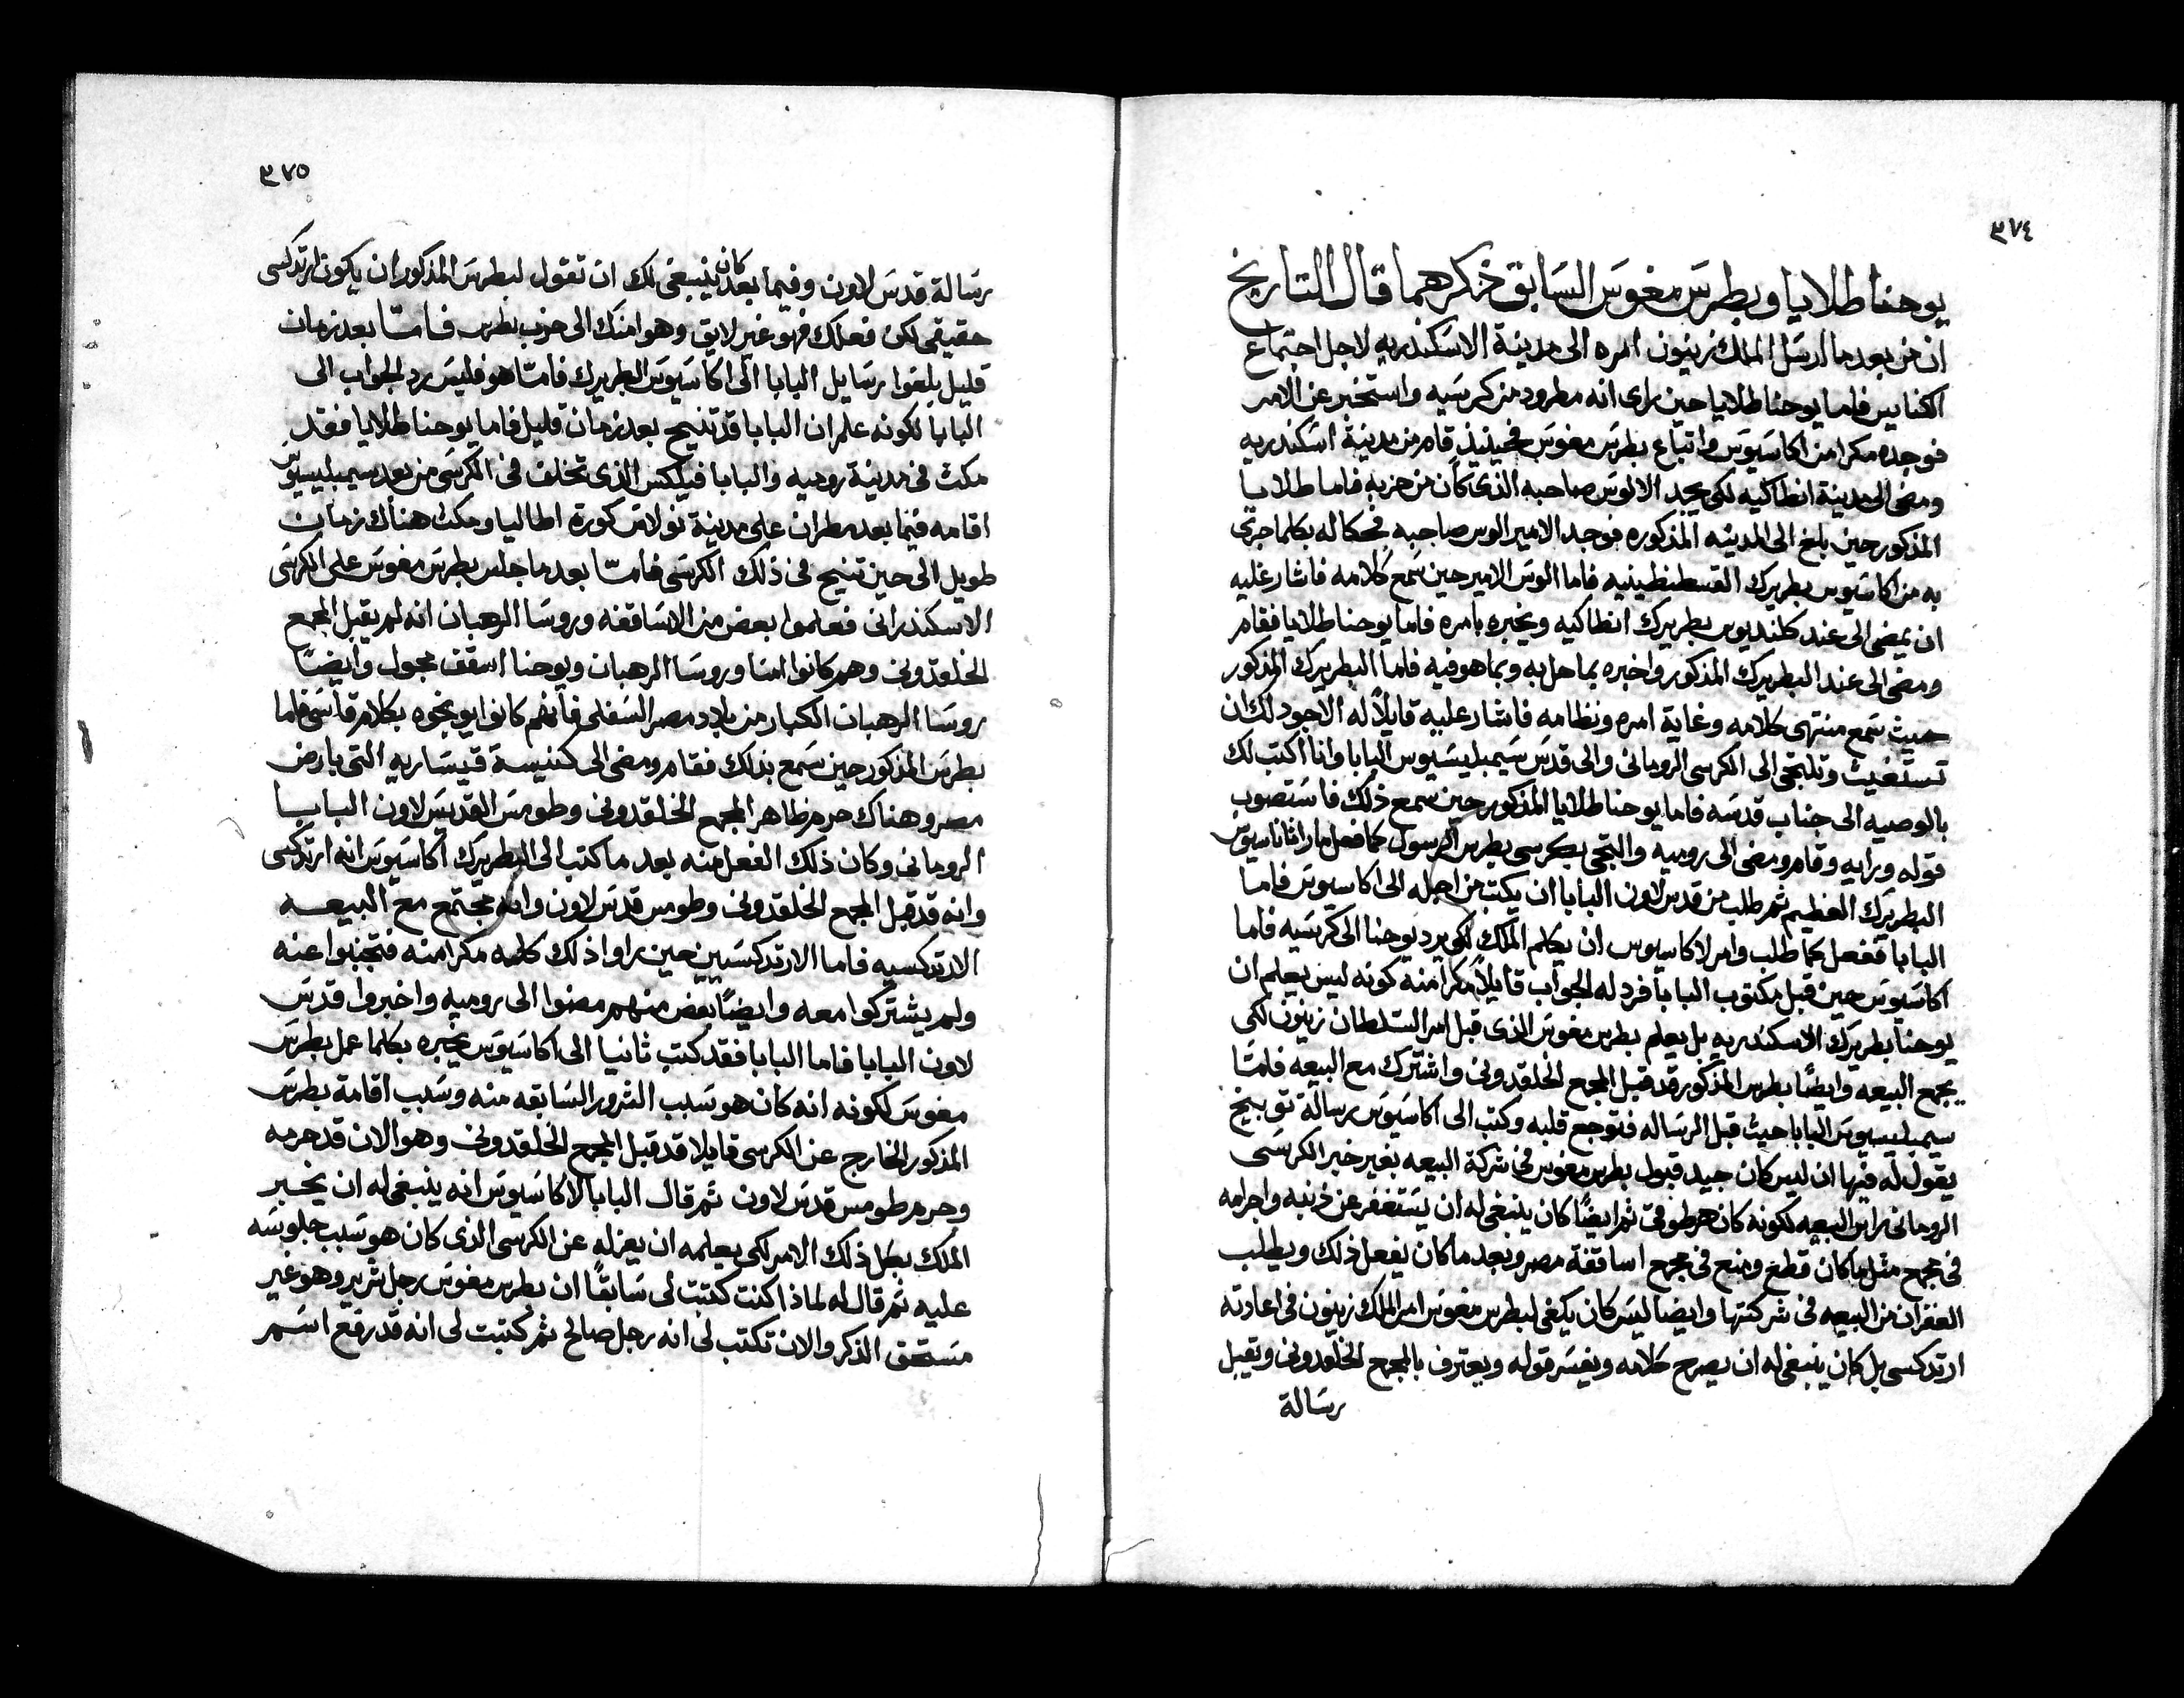 ٣٧٤
يوحنا طلايا وبطرس مغوس السابق ذكرهما قال التاريخ
ان من بعد ما ارسل الملك زينون امره الى مدينة الاسكندريه لاجل اجتماع
الكنايس فاما يوحنا طلايا حين راى انه مطرود من كرسيه واستخبر عن الامر
فوجده مكرا من اكاسيوس واتباع بطرس مغوس فحينيذ قام من مدينة اسكندريه
ومضى الى مدينة انطاكيه لكى يجد الالوس صاحبه الذى كان من حزبه فاما طلايا
المذكور حين بلغ الى المدينه المذكوره فوجد الامير الوس صاحبه فحكا له بكلما جرى
به من اكاسيوس بطريرك القسطنطينيه فاما الوس الامير حين سمع كلامه فاشار عليه
ان يمضى الى عند كلنديوس بطريرك انطاكيه ويخبره بامره فاما يوحنا طلايا فقام
ومضى الى عند البطريرك المذكور واخبره بما حل به وبما هو فيه فاما البطريرك المذكور
حيث سمع منتهى كلامه وغاية امره ونظامه فاشار عليه قايلاً له الاجود لك ان
تستغيث وتلتجى الى الكرسى الرومانى والى قدس سيمبليسيوس البابا وانا اكتب لك
بالوصيه الى جناب قدسه فاما يوحنا طلايا المذكور حين سمع ذلك فاستصوب
قوله ورايه وقام ومضى الى روميه والتجى بكرسى بطرس الرسول كما فعل مار اثاناسيوس
البطريرك العظيم ثم طلب من قدس لاون البابا ان يكتب من اجله الى اكاسيوس فاما
البابا ففعل كما طلب وامر لاكاسيوس ان يكلم الملك لكى يرد يوحنا الى كرسيه فاما
اكاسيوس حين قبل مكتوب البابا فرد له الجواب قايلاً مكرا منه كونه ليس يعلم ان
يوحنا بطريرك الاسكندريه بل يعلم بطرس مغوس الذى قبل امر السلطان زينون لكى
يجمع البيعه وايضًا بطرس المذكور قد قبل المجمع الخلقدونى واشترك مع البيعه فلمّا
سيمبليسيوس البابا حيث قبل الرساله فتوجع قلبه وكتب الى اكاسيوس رسالة توبيخ
يقول له فيها ان ليس كان جيد قبول بطرس مغوس فى شركة البيعه بغير خبر الكرسى
الرومانى راس البيعه لكونه كان هرطوقىّ ثم ايضًا كان ينبغى له ان يستغفر عن ذنبه واجرامه
فى مجمع مثل ما كان قطع ومنع فى مجمع اساقفة مصر وبعد ما كان يفعل ذلك ويطلب
الغفران من البيعه فى شركتها وايضا ليس كان يكفى لبطرس مغوس امر الملك زينون فى اعادته
ارتدكسى بل كان ينبغى له ان يصرح كلامه ويفسر قوله ويعترف بالمجمع الخلقدونى ويقبل
رسالة
٣٧٥
رسالة قدس لاون وفيما بعد كان ينبغى لك ان تقول لبطرس المذكور ان يكون ارتدكسى
حقيقى لكن فعلك فهو غير لايق وهو امنك الى حزب بطرس فامّا بعد زمان
قليل بلغوا رسايل البابا الى اكاسيوس البطريرك فامّا هو فليس رد الجواب الى
البابا لكونه علم ان البابا قد تنيح بعد زمان قليل فاما يوحنا طلايا فقد
مكث فى مدينة روميه والبابا فيلكس الذى تخلف فى الكرسى من بعد سيمبليسيوس
اقامه فيما بعد مطران على مدينة نولا من كورة اطاليا ومكث هناك زمان
طويل الى حين تنيح فى ذلك الكرسى فامّا بعد ما جلس بطرس مغوس على الكرسى
الاسكندرانى فعلموا بعض من الاساقفه وروسا الرهبان انه لم يقبل المجمع
الخلقدونى وهم كانوا امنا وروسا الرهبان ويوحنا اسقف مجول وايضًا
روسا الرهبان الكبار من بلاد مصر السفلى فانهم كانوا يوبخوه بكلام قاسى فاما
بطرس المذكور حين سمع بذلك فقام ومضى الى كنيسة قيساريه التى بارض
مصر وهناك حرم ظاهر المجمع الخلقدونى وطومس القديس لاون البابا
الرومانى وكان ذلك الفعل منه بعد ما كتب الى البطريرك اكاسيوس انه ارتدكسى
وانه قد قبل المجمع الخلقدونى وطومس قدس لاون وانه مجتمع مع البيعه
الارتدكسيه فاما الارتدكسيين حين راوا ذلك كله مكرا منه فتجنبوا عنه
ولم يشتركوا معه وايضًا بعض منهم مضوا الى روميه واخبروا قدس
لاون البابا فاما البابا فقد كتب ثانيا الى اكاسيوس يخبره بكلما عمل بطرس
مغوس لكونه انه كان هو سبب الشرور السابقه منه وسبب اقامة بطرس
المذكور الخارج عن الكرسى قايلا قد قبل المجمع الخلقدونى وهو الان قد حرمه
وحرم طومس قدس لاون ثم قال البابا لاكاسيوس انه ينبغى له ان يخبر
الملك بكل ذلك الامر لكى يعلمه ان يعزله عن الكرسى الذى كان هو سبب جلوسه
عليه ثم قال له لماذا كنت كتبت لى سابقًا ان بطرس مغوس رجل شرير وهو غير
مستحق الذكر والان تكتب لى انه رجل صالح ثم كتبت لى انه قد رفع اسم